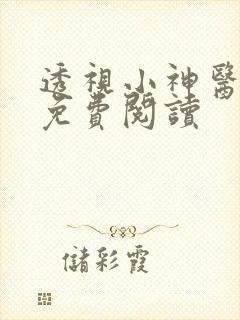 透視小神醫
免費閱讀
儲彩霞